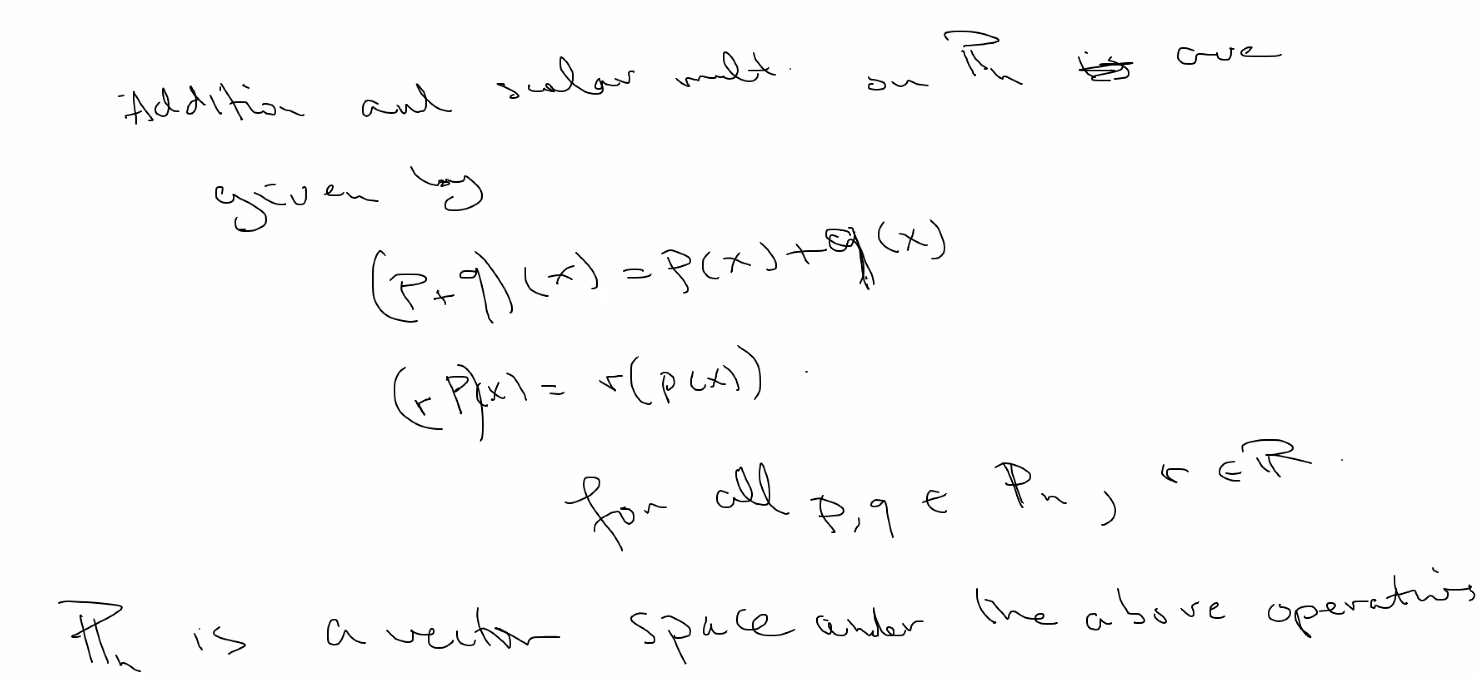 Addition and scalar mult. on ℙₙ are
given by
(p+q)(x) = p(x)+q(x)
(rp)(x) = r(p(x)).
for all p,q ∈ ℙₙ, r ∈ ℝ.
ℙₙ is a vector space under the above operations